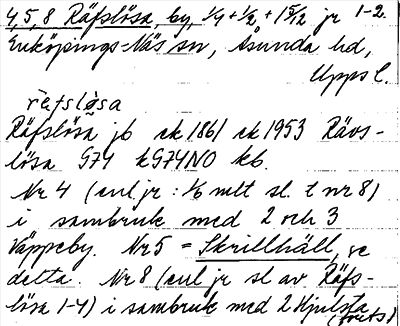 4,5,8 Räfslösa, by, 1/4 + 1/2 + 1 5/12 jr 1-2.
Enköpings-Näs sn, Åsunda hd,
Upps l.
räfslåsa
Räfslösa jb ek 1861 ek 1953 Rävs-
lösa G74 kG74NO kb.
Nr 4 (enl jr : 1/6 mlt sl. t nr 8)
i sambruk med 2 och 3
Väppeby. Nr 5 = Skrillhäll, se
detta. Nr 8 (enl jr sl av Räfs-
lösa 1-4) i sambruk med 2 Hjulsta
(forts)